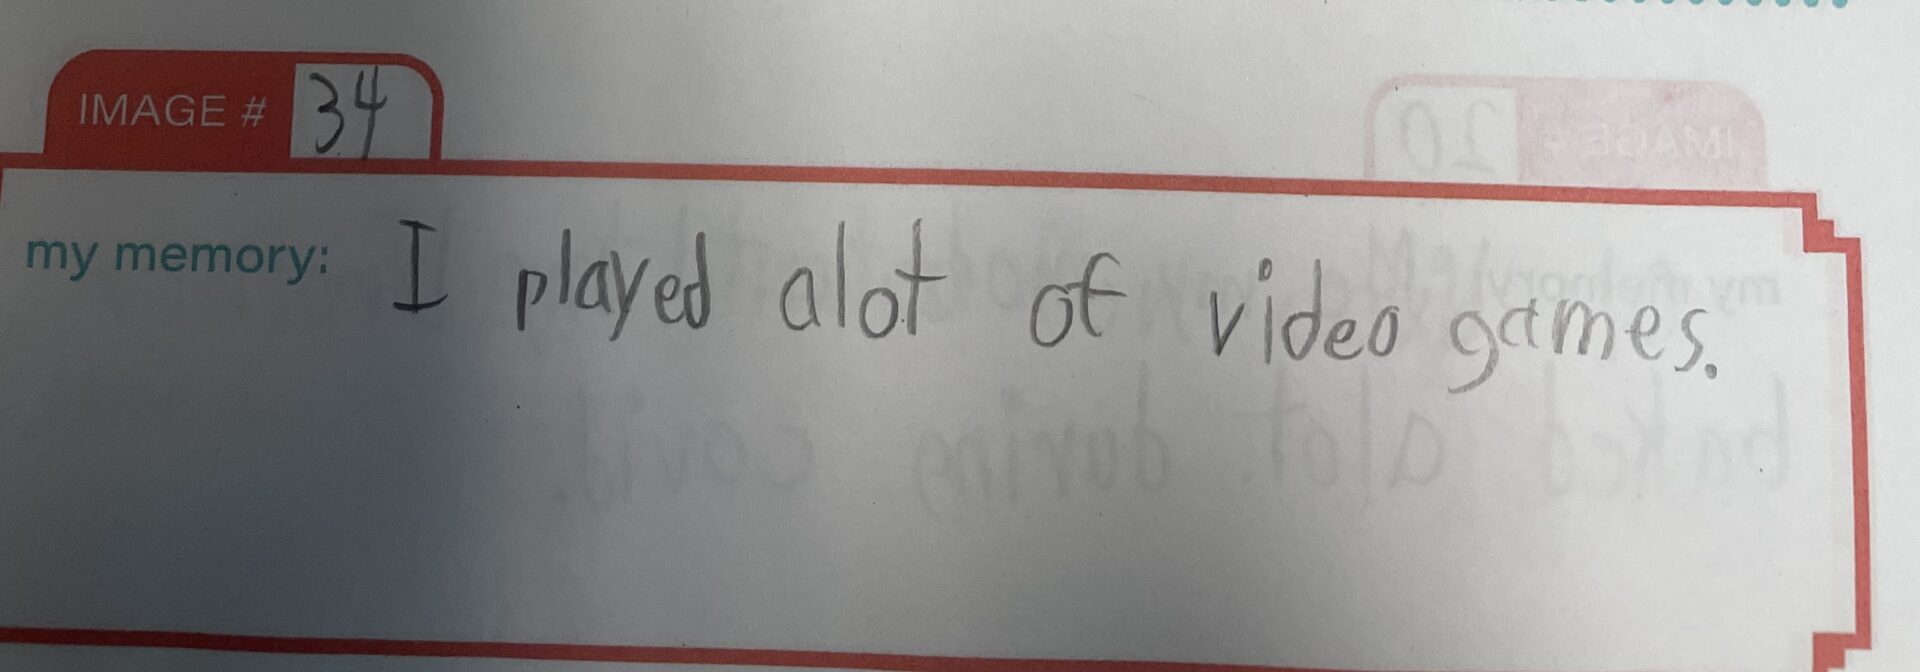 IMAGE # 34
my memory: I played alot of video games.